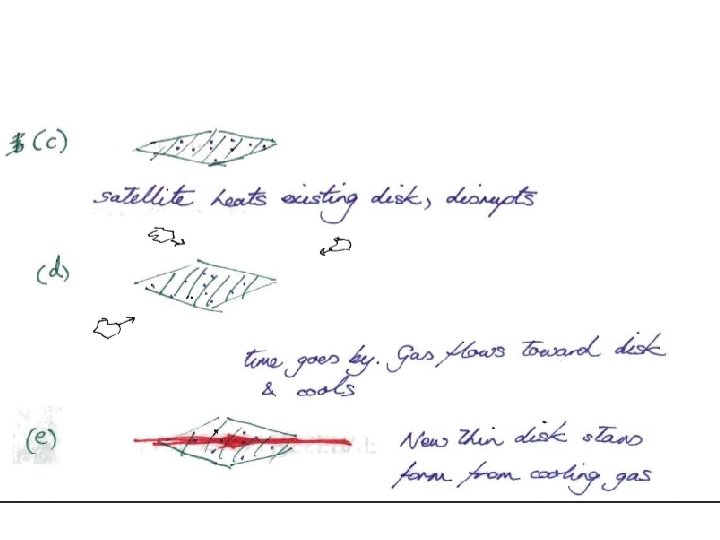 (c)
satellite heats existing disk, disrupts
(d)
time goes by. Gas flows toward disk
& cools
(e)
New thin disk stars
form from cooling gas